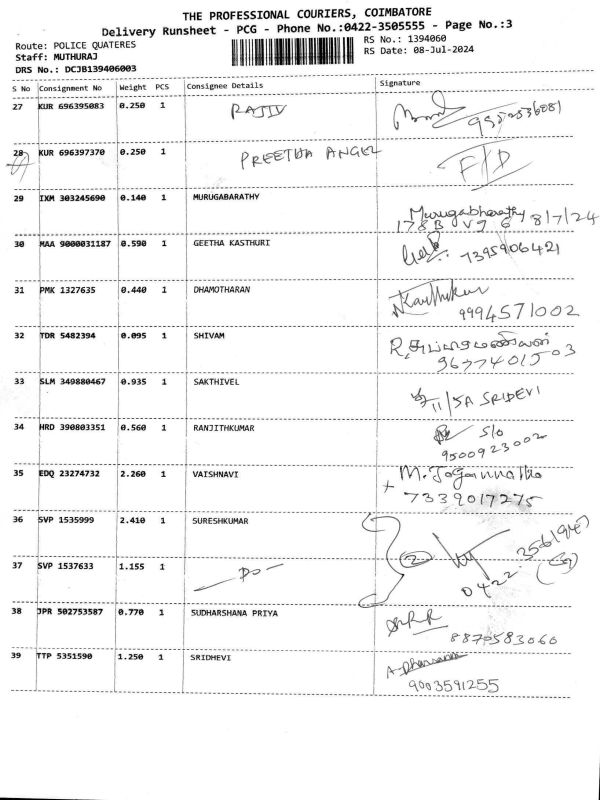 THE PROFESSIONAL COURIERS, COIMBATORE
Delivery Runsheet - PCG - Phone No.:0422-3505555 - Page No.:3
Route: POLICE QUATERES
RS No.: 1394060
Staff: MUTHURAJ
RS Date: 08-Jul-2024
DRS No.: DCJB139406003
S No Consignment No Weight PCS Consignee Details Signature
27 KUR 696395083 0.250 1 RAJIV
28 KUR 696397370 0.250 1 PREETHA ANGEL F/D
29 IXM 303245690 0.140 1 MURUGABARATHY Murugabharathy
178B V J G 8/7/24
30 MAA 9000031187 0.590 1 GEETHA KASTHURI 7395906421
31 PMK 1327635 0.440 1 DHAMOTHARAN Karthikur
9994571002
32 TDR 5482394 0.095 1 SHIVAM
9677401503
33 SLM 349880467 0.935 1 SAKTHIVEL 11/5A SRIDEVI
34 HRD 390803351 0.560 1 RANJITHKUMAR S/o
9500923002
35 EDQ 23274732 2.260 1 VAISHNAVI M. Jagannatha
7339017275
36 SVP 1535999 2.410 1 SURESHKUMAR
37 SVP 1537633 1.155 1 — Do — 2
38 JPR 502753587 0.770 1 SUDHARSHANA PRIYA
8870583060
39 TTP 5351590 1.250 1 SRIDHEVI
9003591255